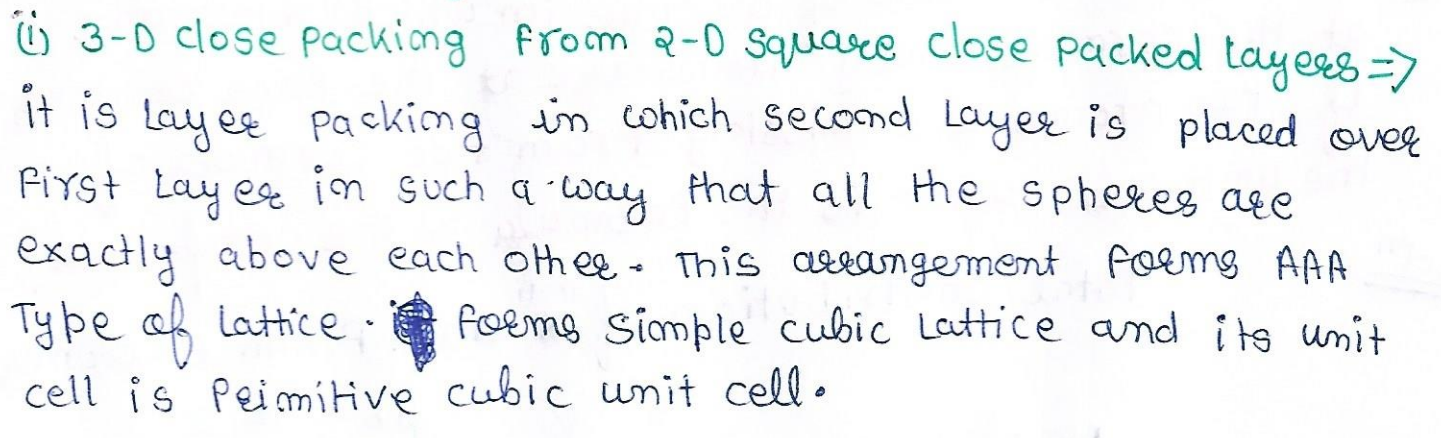 (i) 3-D close packing from 2-D square close packed layers =>
it is layer packing in which second layer is placed over
first layer in such a way that all the spheres are
exactly above each other. This arrangement forms AAA
Type of lattice. forms simple cubic lattice and its unit
cell is Primitive cubic unit cell.